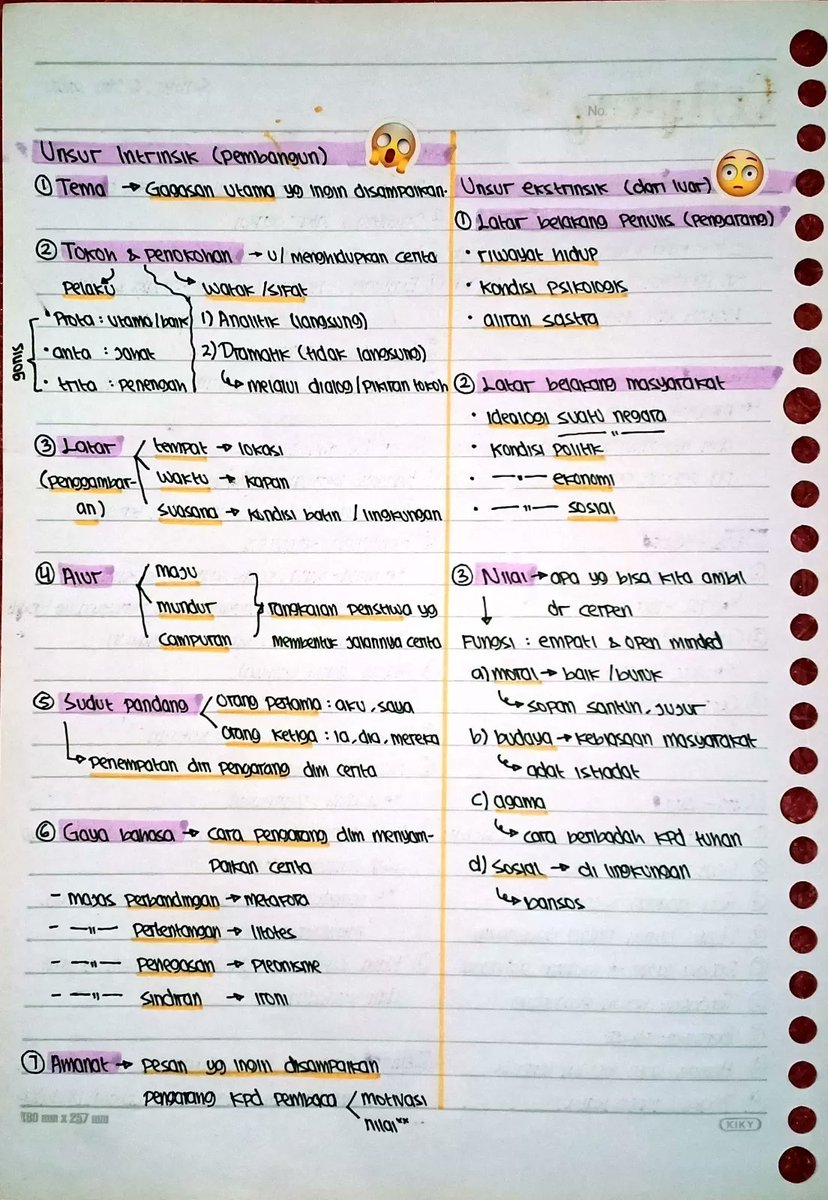 No.
Unsur Intrinsik (pembangun)
① Tema → Gagasan utama yg ingin disampaikan.
② Tokoh & penokohan → u/ menghidupkan cerita
pelaku
watak/sifat
• Prota : utama/baik
• anta : jahat
• trita : penengah
gonis
1) Analitik (langsung)
2) Dramatik (tidak langsung)
↳ melalui dialog/pikiran tokoh
③ Latar
(penggambar-
an)
tempat → lokasi
waktu → kapan
suasana → kundisi batin / lingkungan
④ Alur
maju
mundur
campuran
rangkaian peristiwa yg
membentuk jalannya cerita
⑤ Sudut pandang
orang pertama : aku, saya
orang ketiga : ia, dia, mereka
↳ penempatan dlm pengarang dlm cerita
⑥ Gaya bahasa → cara pengarang dlm menyam-
paikan cerita
- majas perbandingan → metafora
- —"— pertentangan → litotes
- —"— penegasan → pleonisme
- —"— sindiran → ironi
⑦ Amanat → pesan yg ingin disampaikan
pengarang kpd pembaca
motivasi
nilai**
Unsur ekstrinsik (dari luar)
① Latar belakang penulis (pengarang)
• riwayat hidup
• kondisi psikologis
• aliran sastra
② Latar belakang masyarakat
• ideologi suatu negara
• kondisi politik —"—
• —"— ekonomi
• —"— sosial
③ Nilai → apa yg bisa kita ambil
dr cerpen
Fungsi : empati & open minded
a) moral → baik/buruk
↳ sopan santun, jujur
b) budaya → kebiasaan masyarakat
↳ adat istiadat
c) agama
↳ cara beribadah kpd tuhan
d) sosial → di lingkungan
↳ bansos
180 mm x 257 mm
KIKY